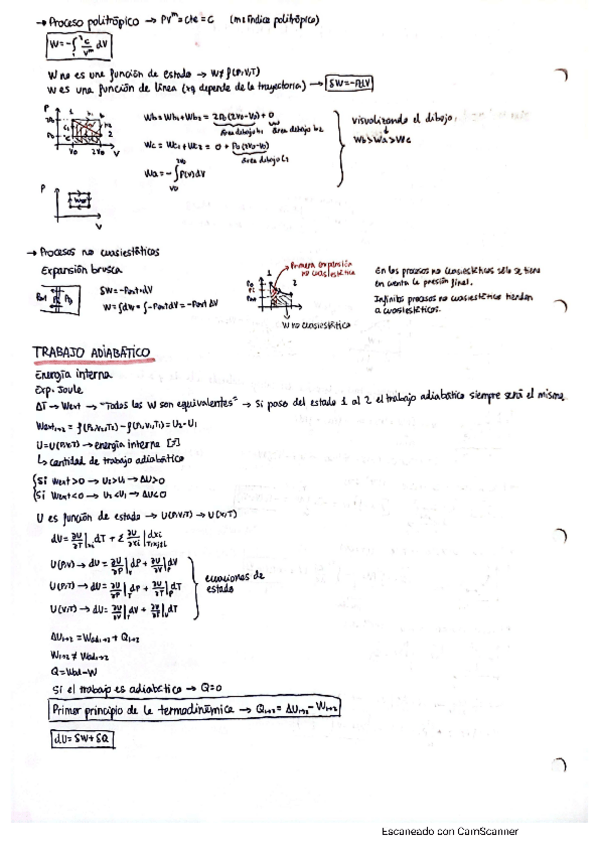 → Proceso politrópico → PV^m = cte = C (m = índice politrópico)
W = -∫₁² C/V^m dV
W no es una función de estado → W ≠ f(P,V,T)
W es una función de línea (xq depende de la trayectoria) → δW = -PdV
Wb = Wb₁ + Wb₂ = 2P₀(2V₀-V₀) + 0
área debajo b₁ área debajo b₂
Wc = Wc₁ + Wc₂ = 0 + P₀(2V₀-V₀)
área debajo c₂
Wa = -∫ P(V)dV
V₀ 2V₀
visualizando el dibujo,
Wb > Wa > Wc
P V
→ Procesos no cuasiestáticos
Expansión brusca
δW = -Pext·dV
W = ∫δW = ∫-Pext dV = -Pext ΔV
Primera expansión no cuasiestática
W no cuasiestático
En los procesos no cuasiestáticos sólo se tiene
en cuenta la presión final.
Infinitos procesos no cuasiestáticos tienden
a cuasiestáticos.
TRABAJO ADIABÁTICO
Energía interna
Exp. Joule
ΔT → Wext → "Todos los W son equivalentes" → Si paso del estado 1 al 2 el trabajo adiabático siempre será el mismo.
Wext₁→₂ = f(P₂,V₂,T₂) - f(P₁,V₁,T₁) = U₂ - U₁
U = U(P,V,T) → energía interna [J]
↳ cantidad de trabajo adiabático
Si Wext > 0 → U₂ > U₁ → ΔU > 0
Si Wext < 0 → U₂ < U₁ → ΔU < 0
U es función de estado → U(P,V,T) → U(X,T)
dU = ∂U/∂T|xi dT + Σ ∂U/∂xi|T,xj≠i dxi
U(P,V) → dU = ∂U/∂P|V dP + ∂U/∂V|P dV
U(P,T) → dU = ∂U/∂P|T dP + ∂U/∂T|P dT
U(V,T) → dU = ∂U/∂V|T dV + ∂U/∂T|V dT
ecuaciones de
estado
ΔU₁→₂ = Wad₁→₂ + Q₁→₂
W₁→₂ ≠ Wad₁→₂
Q = Wad - W
Si el trabajo es adiabático → Q = 0
Primer principio de la termodinámica → Q₁→₂ = ΔU₁→₂ - W₁→₂
dU = δW + δQ
Escaneado con CamScanner